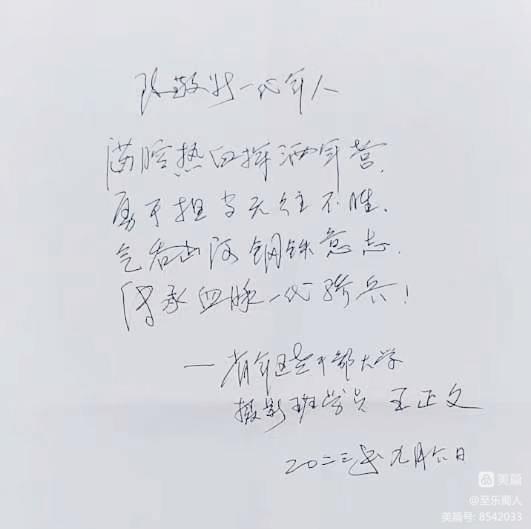 一代军人
满腔热血挥洒军营,
勇于担当无往不胜.
气吞山河钢铁意志.
传承血脉一代骑兵!
—省军区老干部大学
摄影班学员 王正文
二〇二三年 月六日
美篇
@至乐阁人
美篇号: 8542033